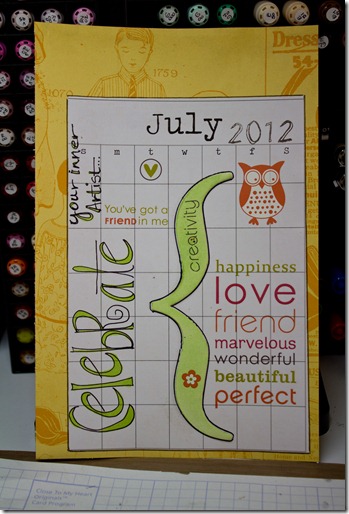 1759
Dress
54
July 2012
s m t w t f s
your inner
Artist...
You've got a
FRIEND in me
creativity
CeleBRate
happiness
love
friend
marvelous
wonderful
beautiful
perfect
Close To My Heart
Originals™